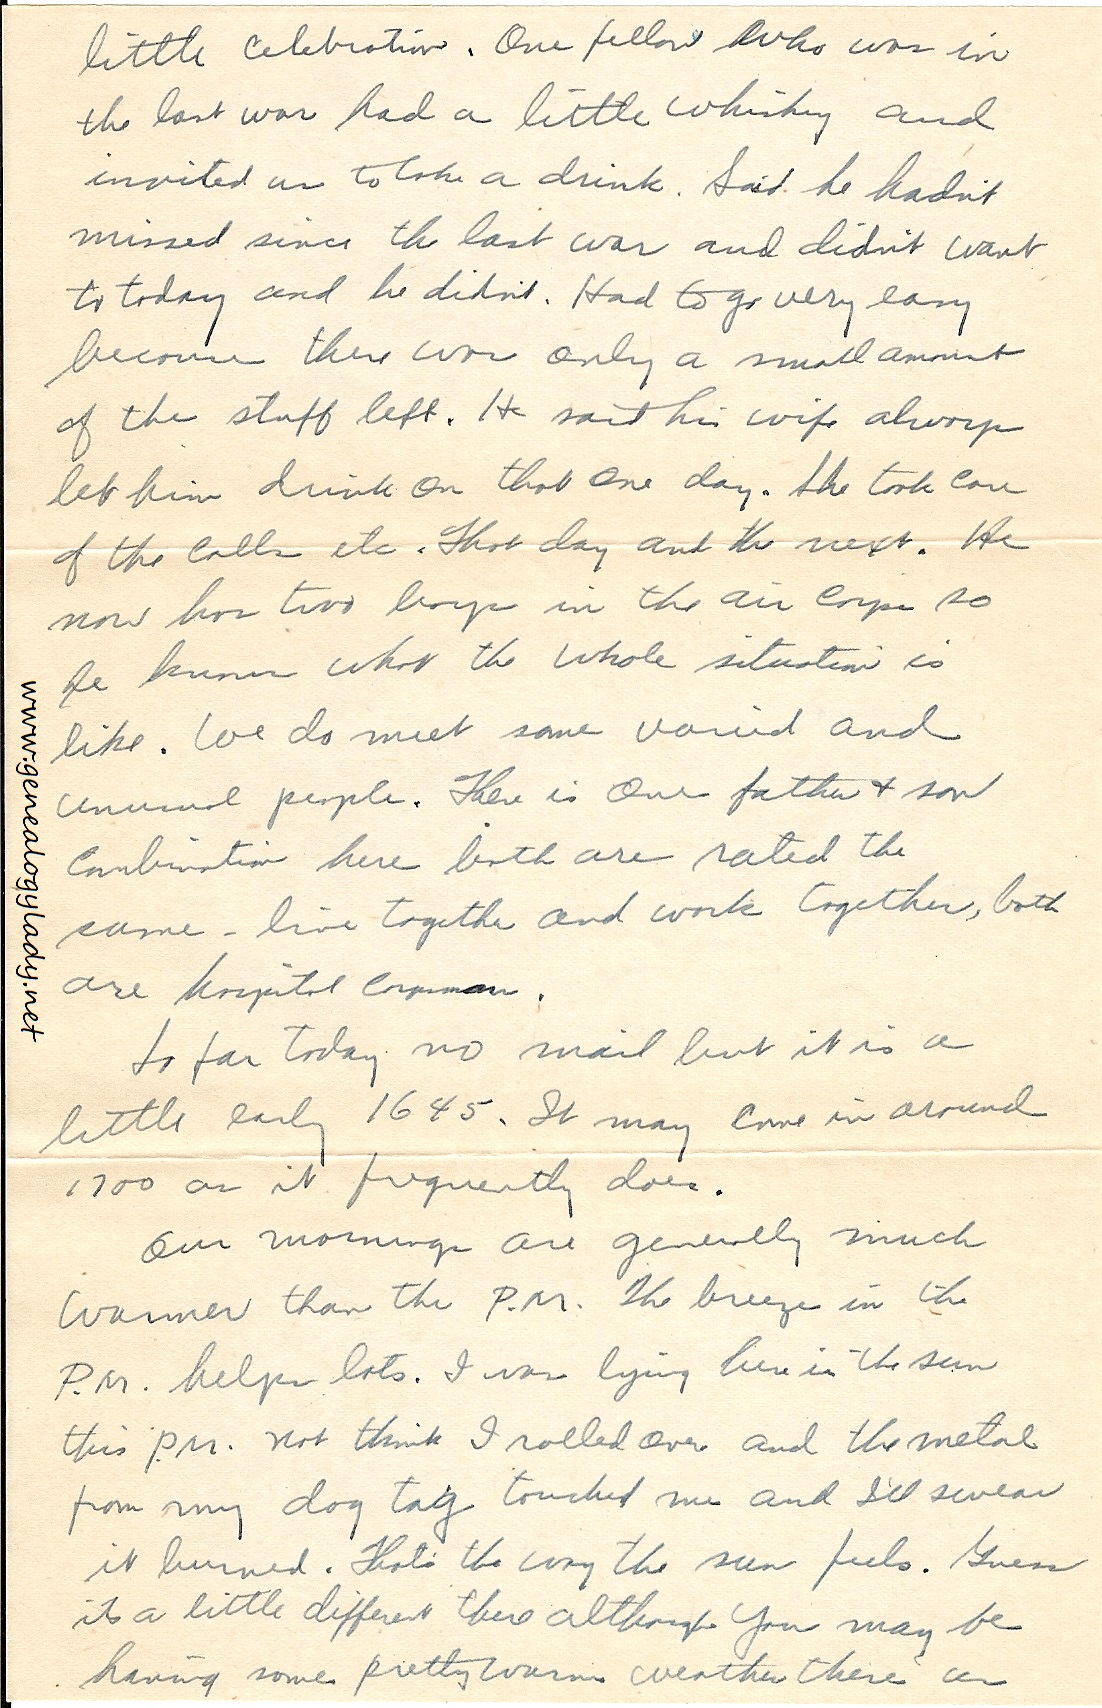 little celebration. One fellow who was in
the last war had a little whiskey and
invited us to take a drink. Said he hadn't
missed since the last war and didn't want
to today and he didn't. Had to go very easy
because there was only a small amount
of the stuff left. He said his wife always
let him drink on that one day. She took care
of the calls etc. That day and the next. He
now has two boys in the air corps so
he knows what the whole situation is
like. We do meet some varied and
unusual people. There is one father & son
combination here both are rated the
same - live together and work together, both
are hospital corpsman.
So far today no mail but it is a
little early 1645. It may come in around
1700 as it frequently does.
Our mornings are generally much
warmer than the P.M. The breeze in the
P.M. helps lots. I was lying here in the sun
this P.M. not think I rolled over and the metal
from my dog tag touched me and I'll swear
it burned. That's the way the sun feels. Guess
its a little different there although you may be
having some pretty warm weather there as
www.genealogylady.net